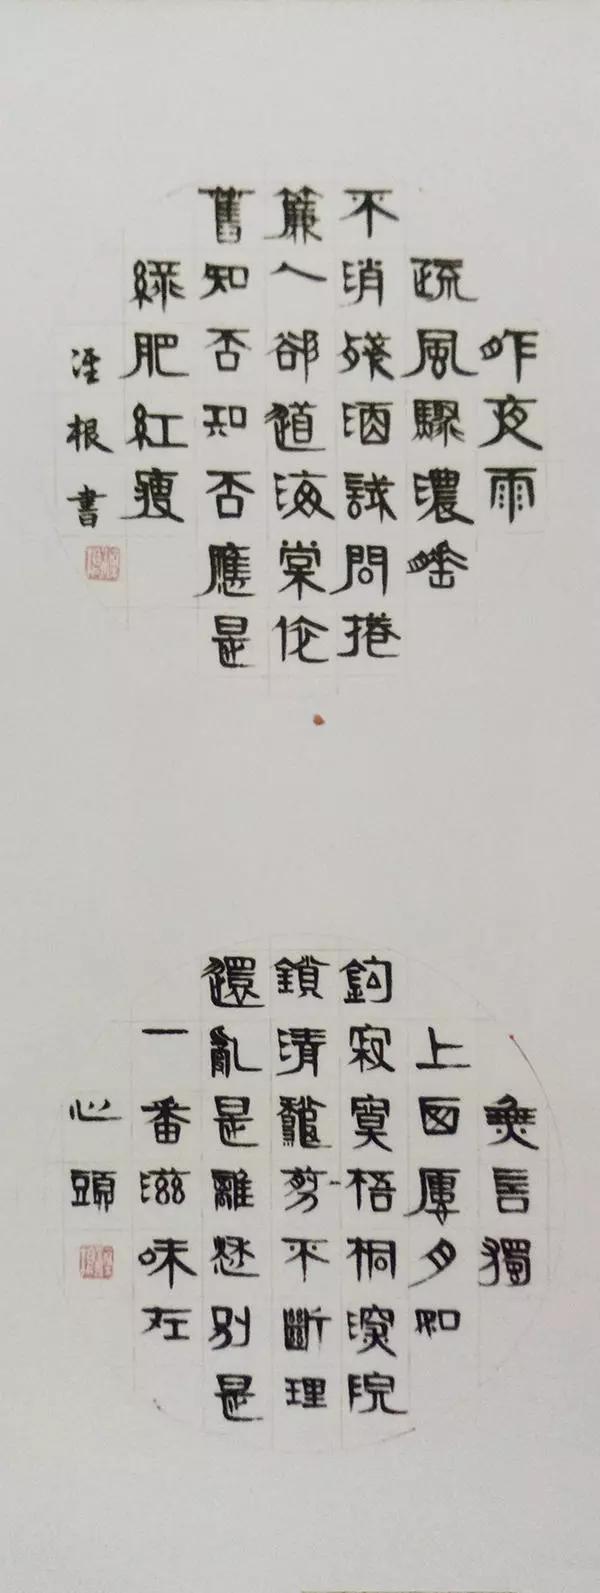 昨夜雨
疏風驟濃睡
不消殘酒試問捲
簾人卻道海棠依
舊知否知否應是
綠肥紅瘦
根書
無言獨
上西廔月如
鉤寂寞梧桐深院
鎖清龝剪不斷理
還亂是離愁別是
一番滋味在
心頭